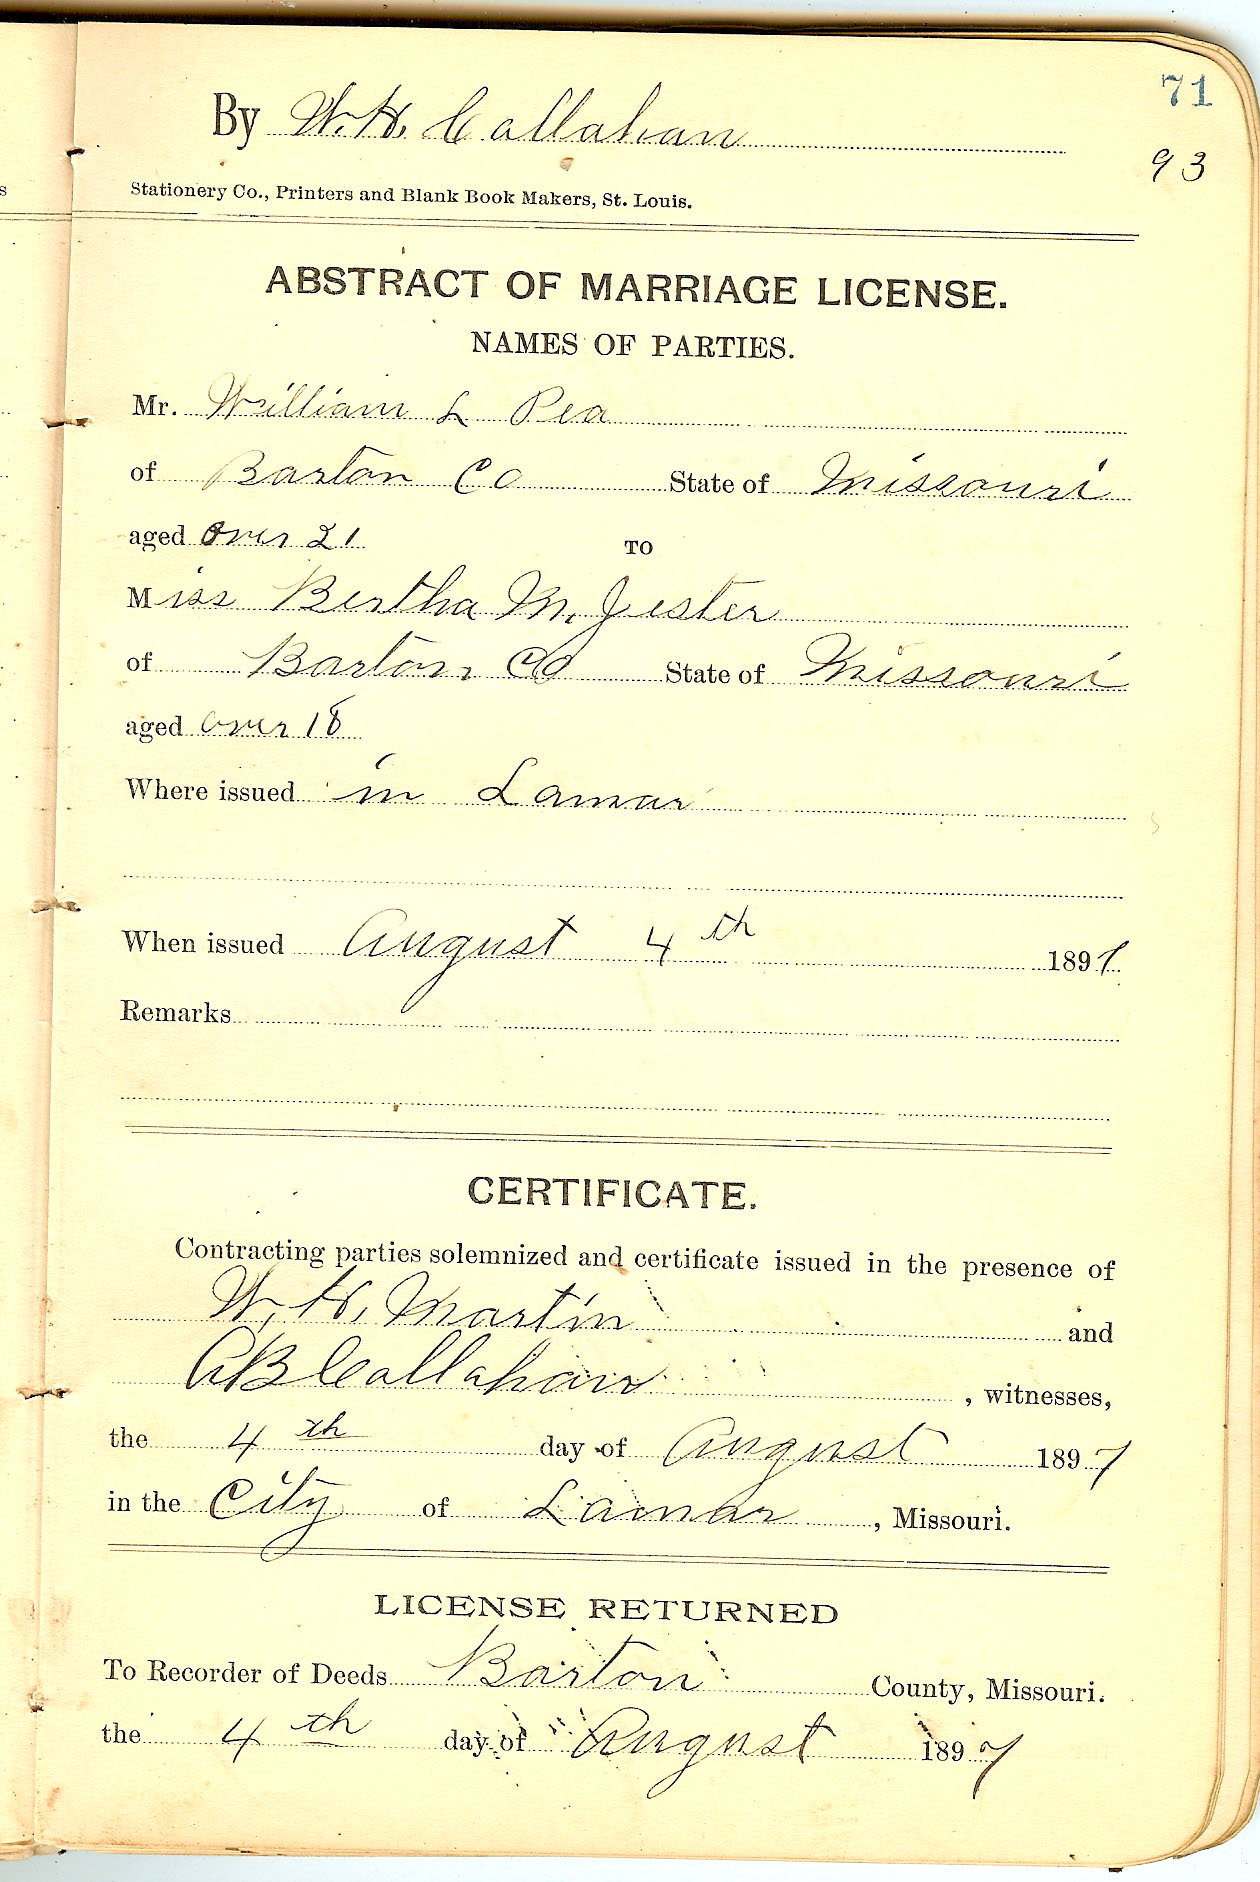 71
By W. H. Callahan
93
Stationery Co., Printers and Blank Book Makers, St. Louis.
ABSTRACT OF MARRIAGE LICENSE.
NAMES OF PARTIES.
Mr. William L Pea
of Barton Co State of Missouri
aged over 21
TO
Miss Bertha M. Jester
of Barton Co State of Missouri
aged over 18
Where issued in Lamar
When issued August 4th 1897
Remarks
CERTIFICATE.
Contracting parties solemnized and certificate issued in the presence of
W. H. Martin and
A B Callahan , witnesses,
the 4th day of August 1897
in the City of Lamar , Missouri.
LICENSE RETURNED
To Recorder of Deeds Barton County, Missouri.
the 4th day of August 1897